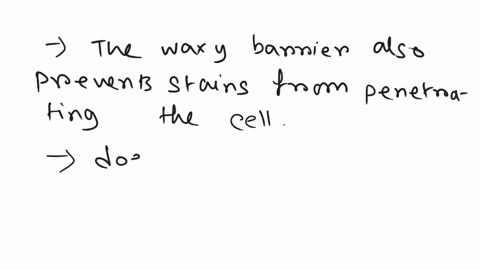 → The waxy barrier also
prevents stains from penetra-
ting the cell.
→ do